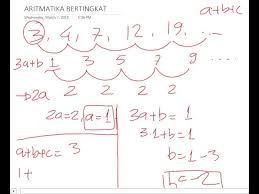 ARITMATIKA BERTINGKAT
Wednesday, March 7, 2018
3, 4, 7, 12, 19, ... a+b+c
3a+b 1 3 5 7 9
→2a 2 2 2
2a=2, a=1
a+b+c = 3
1+
3a+b=1
3.1+b=1
b=1-3
b=-2